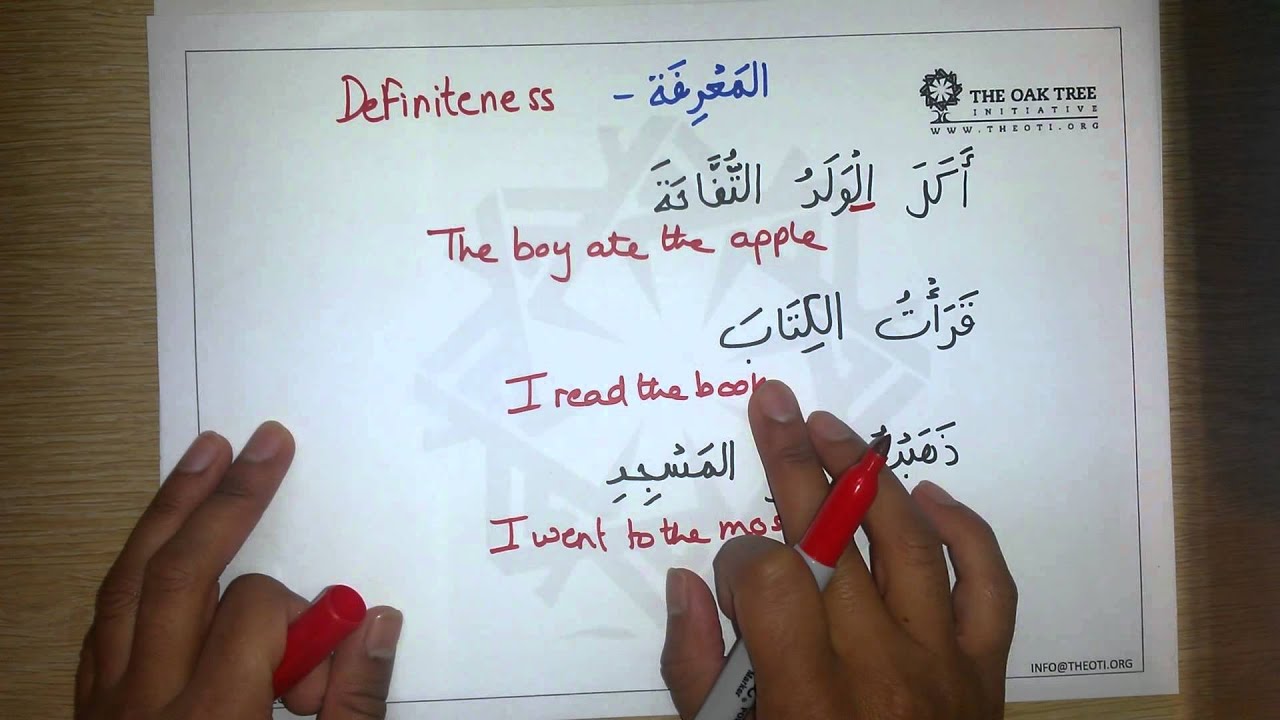 Definiteness - المَعْرِفَة
THE OAK TREE
INITIATIVE
WWW.THEOTI.ORG
أَكَلَ الْوَلَدُ التُّفَّاحَةَ
The boy ate the apple
قَرَأْتُ الكِتَابَ
I read the book
المَسْجِدِ
I went to the
INFO@THEOTI.ORG